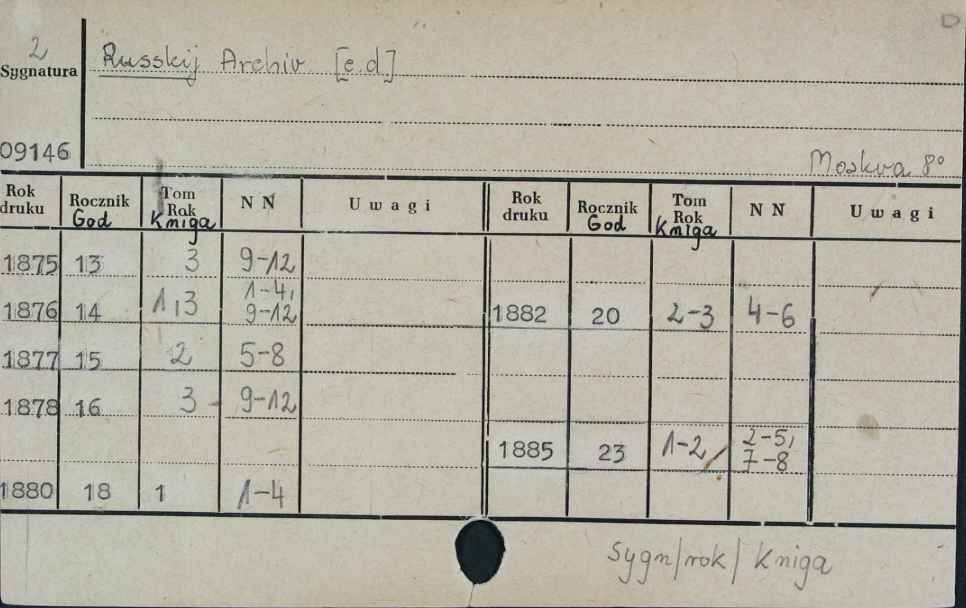 2
Sygnatura
Russkij Archiv [e.d.]
09146
Moskva 8°
Rok druku Rocznik God Tom Rok Kniga NN Uwagi Rok druku Rocznik God Tom Rok Kniga NN Uwagi
1875 13 3 9-12
1876 14 1,3 1-4, 9-12 1882 20 2-3 4-6
1877 15 2 5-8
1878 16 3 9-12
1885 23 1-2 2-5, 7-8
1880 18 1 1-4
Sygn/rok/ Kniga